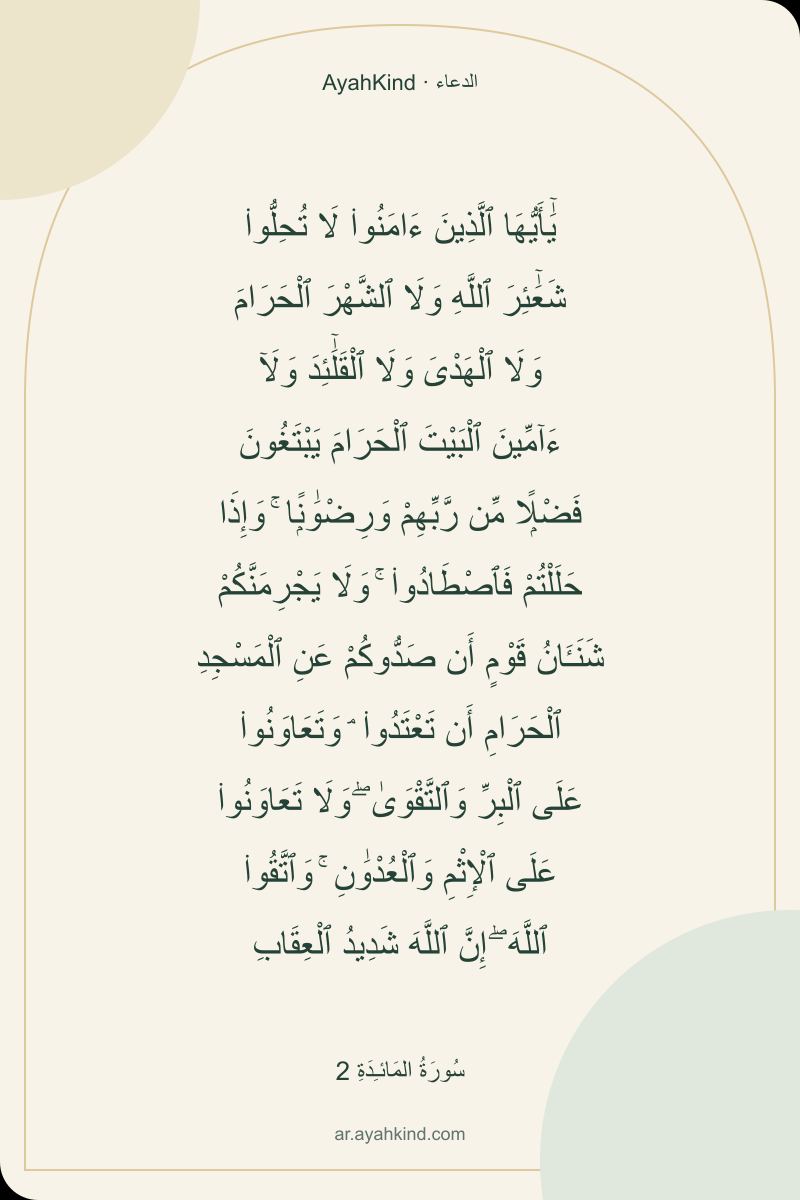 AyahKind · الدعاء
يَٰٓأَيُّهَا ٱلَّذِينَ ءَامَنُوا۟ لَا تُحِلُّوا۟
شَعَٰٓئِرَ ٱللَّهِ وَلَا ٱلشَّهْرَ ٱلْحَرَامَ
وَلَا ٱلْهَدْىَ وَلَا ٱلْقَلَٰٓئِدَ وَلَآ
ءَآمِّينَ ٱلْبَيْتَ ٱلْحَرَامَ يَبْتَغُونَ
فَضْلًۭا مِّن رَّبِّهِمْ وَرِضْوَٰنًۭا ۚ وَإِذَا
حَلَلْتُمْ فَٱصْطَادُوا۟ ۚ وَلَا يَجْرِمَنَّكُمْ
شَنَـَٔانُ قَوْمٍ أَن صَدُّوكُمْ عَنِ ٱلْمَسْجِدِ
ٱلْحَرَامِ أَن تَعْتَدُوا۟ ۘ وَتَعَاوَنُوا۟
عَلَى ٱلْبِرِّ وَٱلتَّقْوَىٰ ۖ وَلَا تَعَاوَنُوا۟
عَلَى ٱلْإِثْمِ وَٱلْعُدْوَٰنِ ۚ وَٱتَّقُوا۟
ٱللَّهَ ۖ إِنَّ ٱللَّهَ شَدِيدُ ٱلْعِقَابِ
سُورَةُ المَائـِدَةِ 2
ar.ayahkind.com